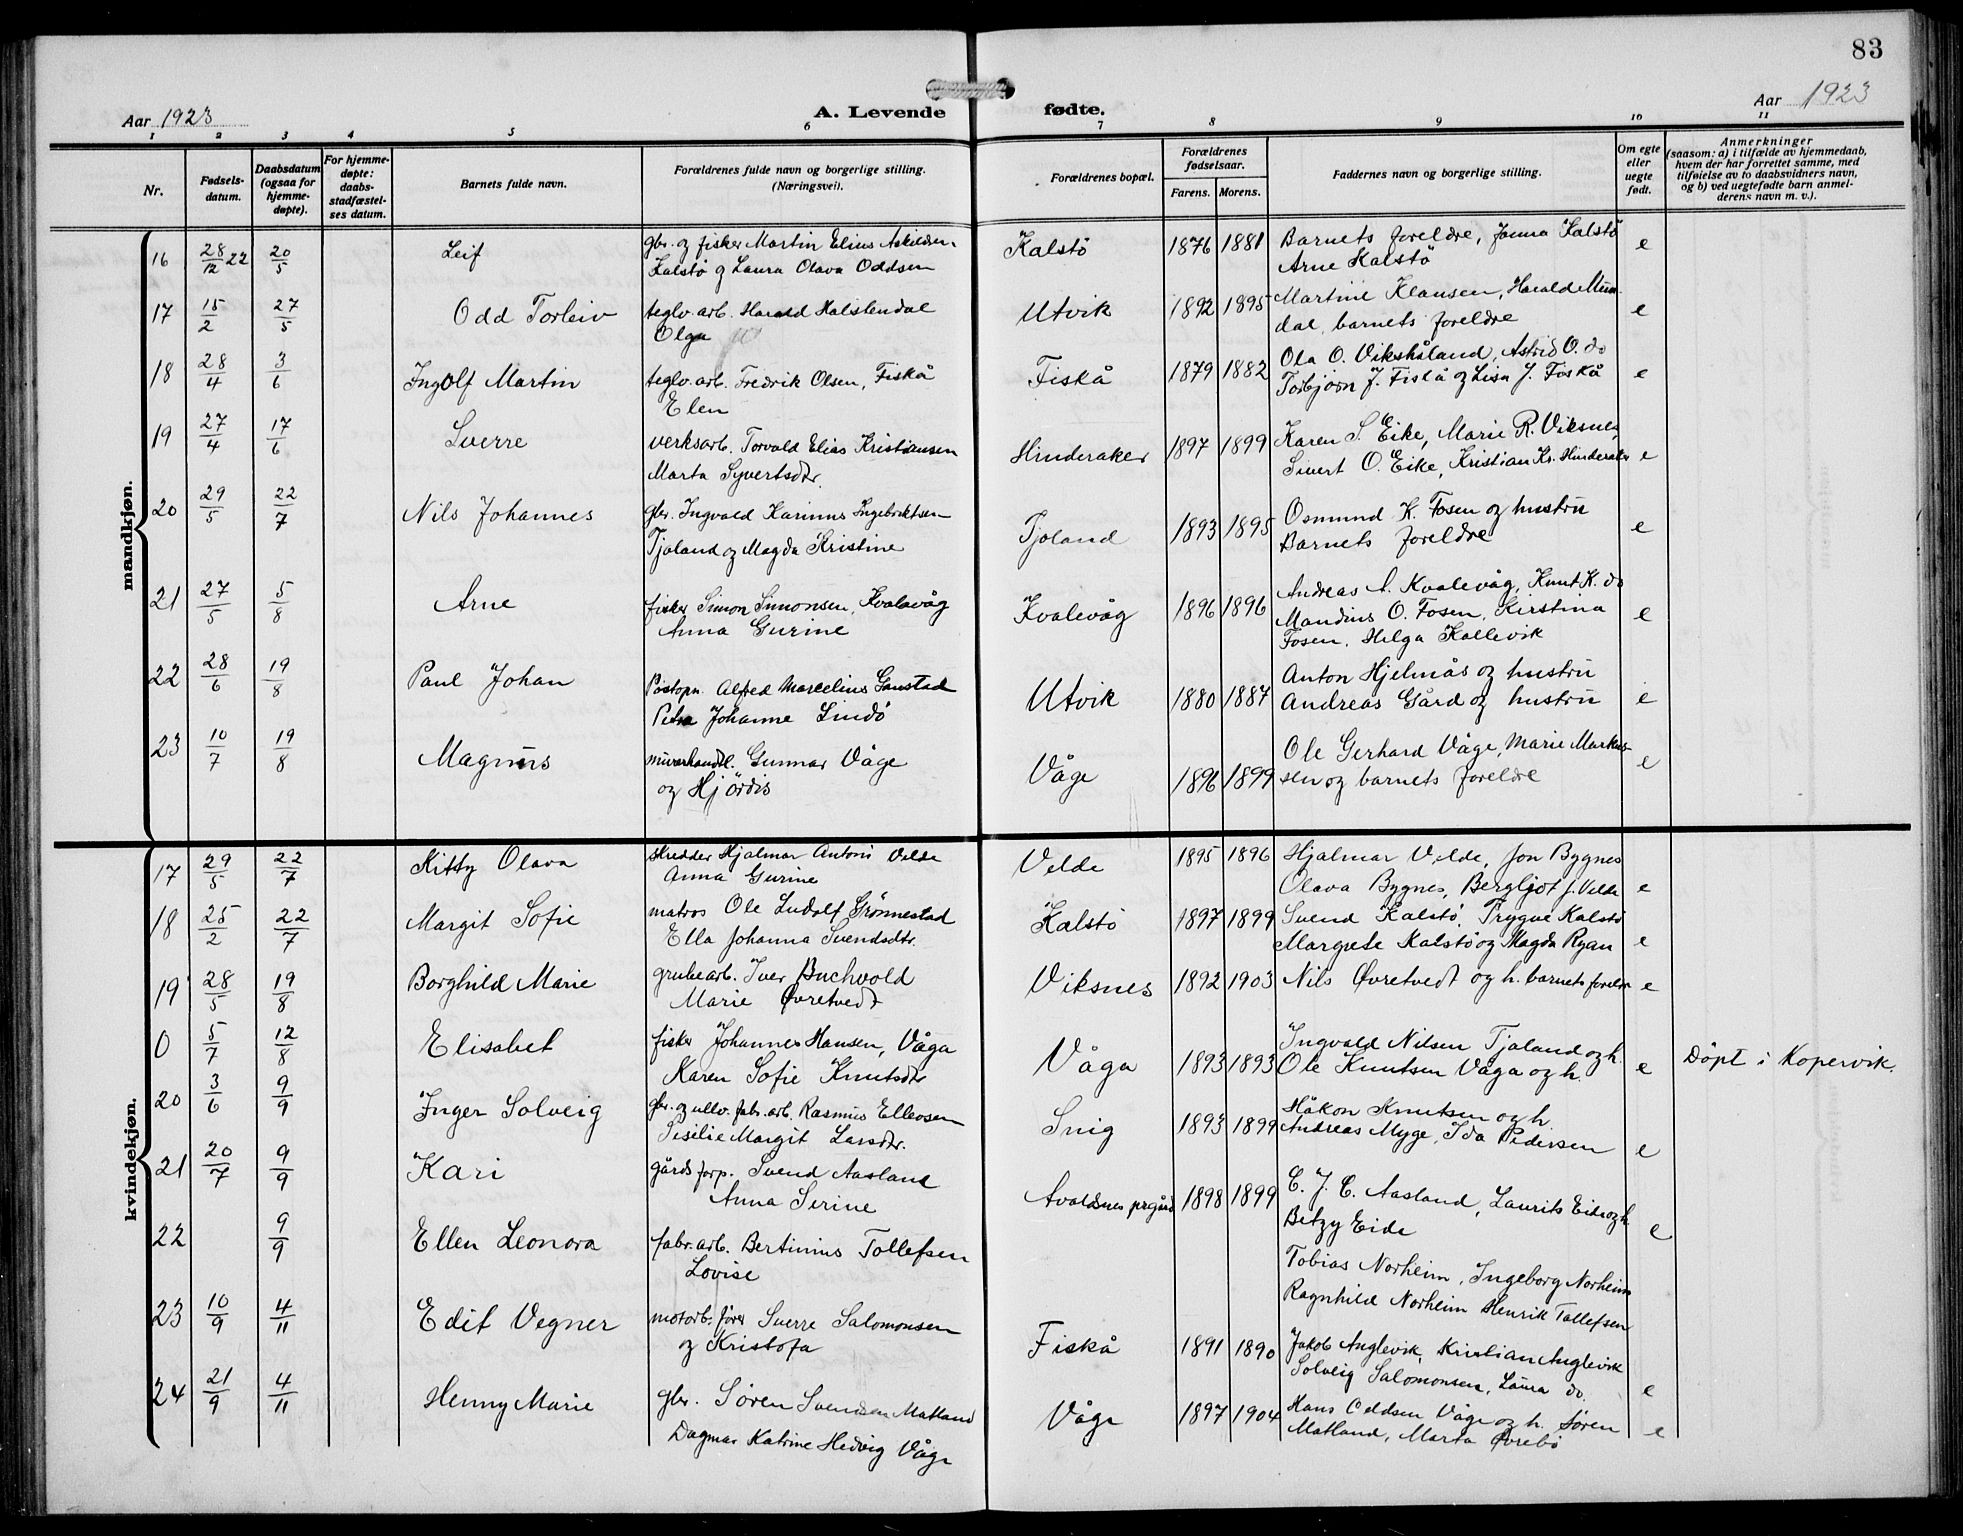 83
Aar 1923 A. Levende fødte. Aar 1923
1 2 3 4 5 6 7 8 9 10 11
Nr. Fødsels-datum. Daabsdatum (ogsaa for hjemme-døpte). For hjemme-døpte: daabs-stadfæstel-ses datum. Barnets fulde navn. Forældrenes fulde navn og borgerlige stilling. (Næringsvei). Forældrenes bopæl. Forældrenes fødselsaar. Farens. Morens. Faddernes navn og borgerlige stilling. Om egte eller uegte født. Anmerkninger (saasom: a) i tilfælde av hjemmedaab, hvem der har forrettet samme, med tilføielse av to daabsvidners navn, og b) ved uegtefødte barn anmel-derens navn m. v.).
mandkjøn.
16 28/12 22 20/5 Leif gbr. og fisker Martin Elius Askildsen Kalstö 1876 1881 Barnets foreldre, Janna Kalstö e
Kalstø og Laura Olava Oddsen Arne Kalstö
17 15/2 27/5 Odd Torleiv teglv. arb. Harald Halstendal Utvik 1892 1895 Martine Klausen, Harald Mun- e
Olga dal, barnets foreldre
18 28/4 3/6 Ingolf Martin teglv. arb. Fredrik Olsen, Fiskå Fiskå 1879 1882 Ola O. Vikshåland, Astrid O. do e
Elen Torbjörn J. Fiskå og Lisa J. Fiskå
19 27/4 17/6 Sverre verksarb. Torvald Elias Kristiansen Hinderaker 1897 1899 Karen S. Eike, Marie R. Viksnes, e
Marta Syvertsdtr. Sivert O. Eike, Kristian Kr. Hinderaker
20 29/5 22/7 Nils Johannes gbr. Ingvald Karinus Ingebriktsen Tjoland 1893 1895 Osmund K. Fosen og hustru e
Tjoland og Magda Kristine Barnets foreldre
21 27/5 5/8 Arne fisker Simon Simonsen, Kvalavåg Kvalevåg 1896 1896 Andreas A. Kvalevåg, Knut K. do e
Anna Gurine Mandius O. Fosen, Kirstina
Fosen, Helga Kallevik
22 28/6 19/8 Paul Johan Postopn. Alfred Marcelius Gaustad Utvik 1880 1887 Anton Hjelmås og hustru e
Petra Johanne Lindö Andreas Gård og hustru
23 10/7 19/8 Magnus Gunnar Våge Våge 1896 1899 Ole Gerhard Våge, Marie Markus- e
og Hjördis sen og barnets foreldre
kvindekjøn.
17 29/5 22/7 Kitty Olava skredder Hjalmar Antoni Velde Velde 1895 1896 Hjalmar Velde, Jon Bygnes
Anna Gurine Olava Bygnes, Bergljot J. Velde e
18 25/2 22/7 Margit Sofie matros Ole Ludolf Grönnestad Kalstö 1897 1899 Svend Kalstö, Trygve Kalstö
Ella Johanna Svendsdtr. Margrete Kalstö og Magda Ryan e
19 28/5 19/8 Borghild Marie grubearb. Iver Buchvold Viksnes 1892 1903 Nils Øvretvedt og h. barnets foreldr e
Marie Øvretvedt
0 5/7 12/8 Elisabet fisker Johannes Hansen, Våga Våga 1893 1893 Ingvald Nilsen Tjoland og h. e Döpt i Kopervik.
Karen Sofie Knutsdtr Ole Knutsen Våga og h.
20 3/6 9/9 Inger Solveig gbr. og ullv. fabr. arb. Rasmus Ellevsen Snig 1893 1899 Håkon Knutsen og h.
Sisilie Margit Larsdtr. Andreas Myge, Ida Pedersen e
21 20/7 9/9 Kari gårdsforp. Svend Aasland Avaldsnes prgård 1898 1899 C. J. C. Aasland, Laurits Eide og h.
Anna Serine Betzy Eide e
22 9/9 Ellen Leonora fabr. arb. Bertinius Tollefsen Tobias Norheim, Ingeborg Norheim
Lovise Ragnhild Norheim Henrik Tollefsen
23 10/9 4/11 Edit Vegner motorb. fører Sverre Salomonsen Fiskå 1891 1890 Jakob Anglevik, Kristian Anglevik
og Kristofa Solveig Salomonsen, Laura do. e
24 21/9 4/11 Henny Marie gbr. Søren Svendsen Matland Våge 1897 1904 Hans Oddsen Våge og h. Søren e
Dagmar Katrine Hedvig Våge Matland, Marta Øvrebö